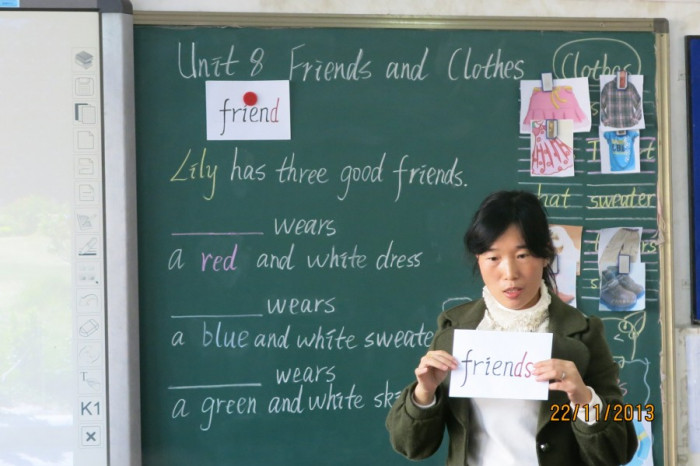 Unit 8 Friends and Clothes
Clothes
friend
Lily has three good friends.
wears
a red and white dress
hat sweater
wears
a blue and white sweate
wears
a green and white
friends
22/11/2013
K1